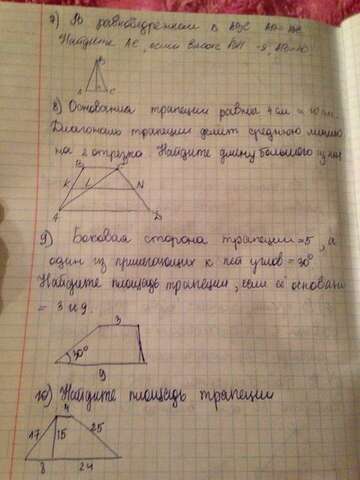 7) В равнобедренном
Найдите AC, если
B
A C
8) Основания трапеции равны 4 см и 10 см.
Диагональ трапеции делит среднюю линию
на 2 отрезка. Найдите длину большого из них
K L N
A D
9) Боковая сторона трапеции =5, а
один из прилегающих к ней углов = 30°.
Найдите площадь трапеции, если её основани
= 3 и 9.
3
30°
9
10) Найдите площадь трапеции
4
17 15 25
8 24